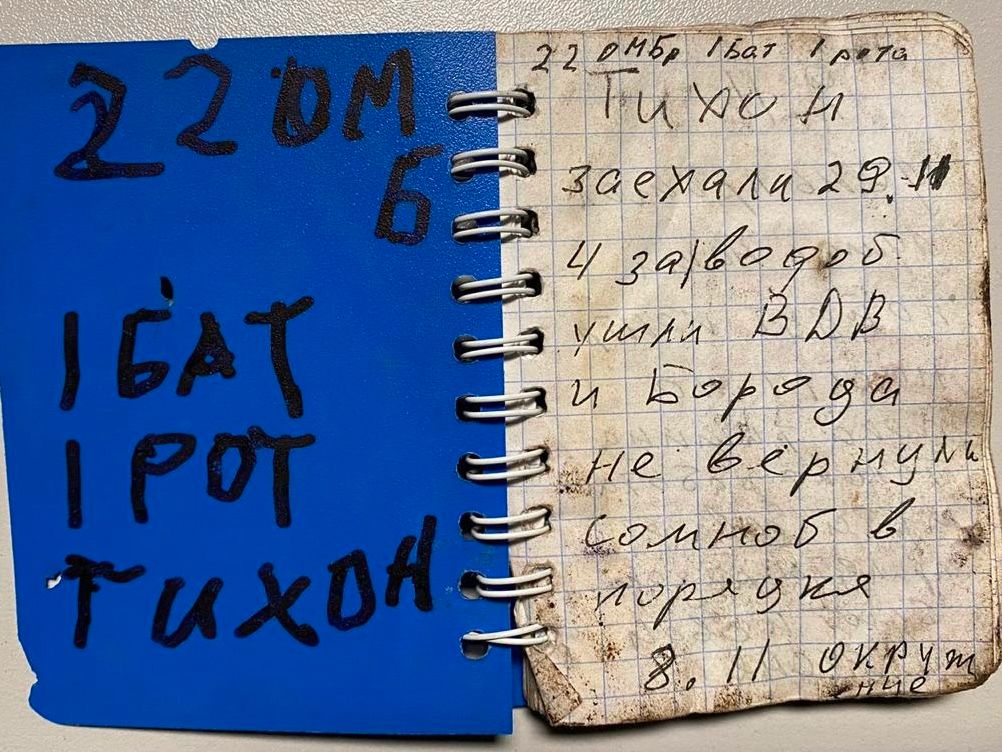 22 ОМ
Б
1 БАТ
1 РОТ
ТИХОН
22 ОМБр 1 Бат 1 рота
ТИХОН
заехали 29.11
4 за водоб
ушли ВДВ
и Борода
не вернули
сомноб в
порядкя
8.11 ОКРУЖ
ние